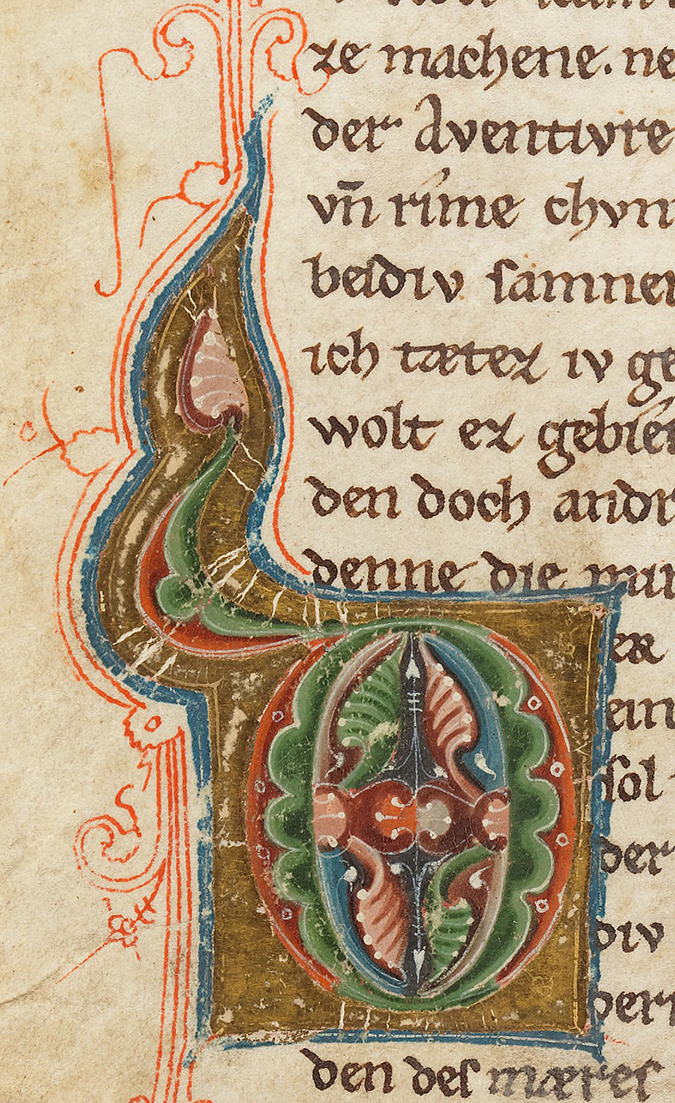 ze machene. ne
der Aventivre
vn̄ rime chvn
beidiv ſamnen
ich tætez iv ge
wolt ez gebie
den doch andr
denne die
er
ein
ſol
der
div
den deſ mæreſ